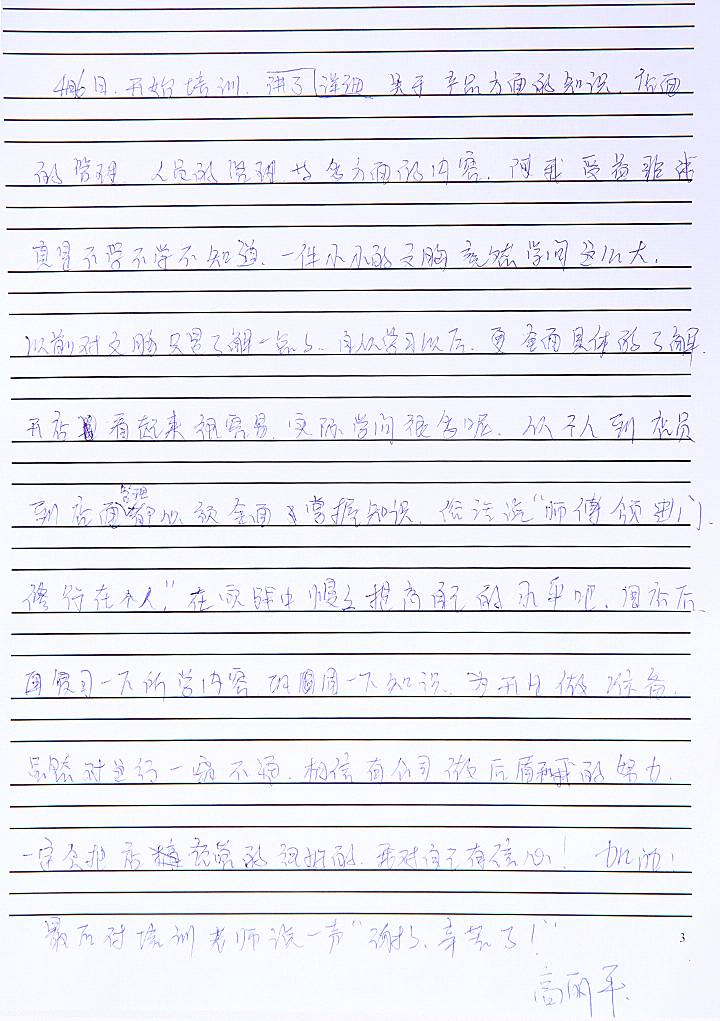 4月6日.开始培训.讲了详细 关于产品方面的知识.店面
的管理 人员的管理.等多方面的内容.阿我受益非浅
真是不学不知道.一件小小的文胸竟然学问这么大.
以前对文胸只是了解一点点.自从学习以后.更全面具体的了解.
开店看起来很容易.实际学问很多呢.从个人到店员
到店面管理都必须全面掌握知识.俗话说"师傅领进门.
修行在个人."在实践中慢慢提高自己的水平吧.回店后.
再复习一下所学内容 巩固一下知识.为开业做准备.
虽然对这行一窍不通.相信有公司做后盾和我的努力.
一定会把店 经营的很好的.我对自己有信心! 加油!
最后对培训老师说一声"谢谢.辛苦了!"
高丽军.
3